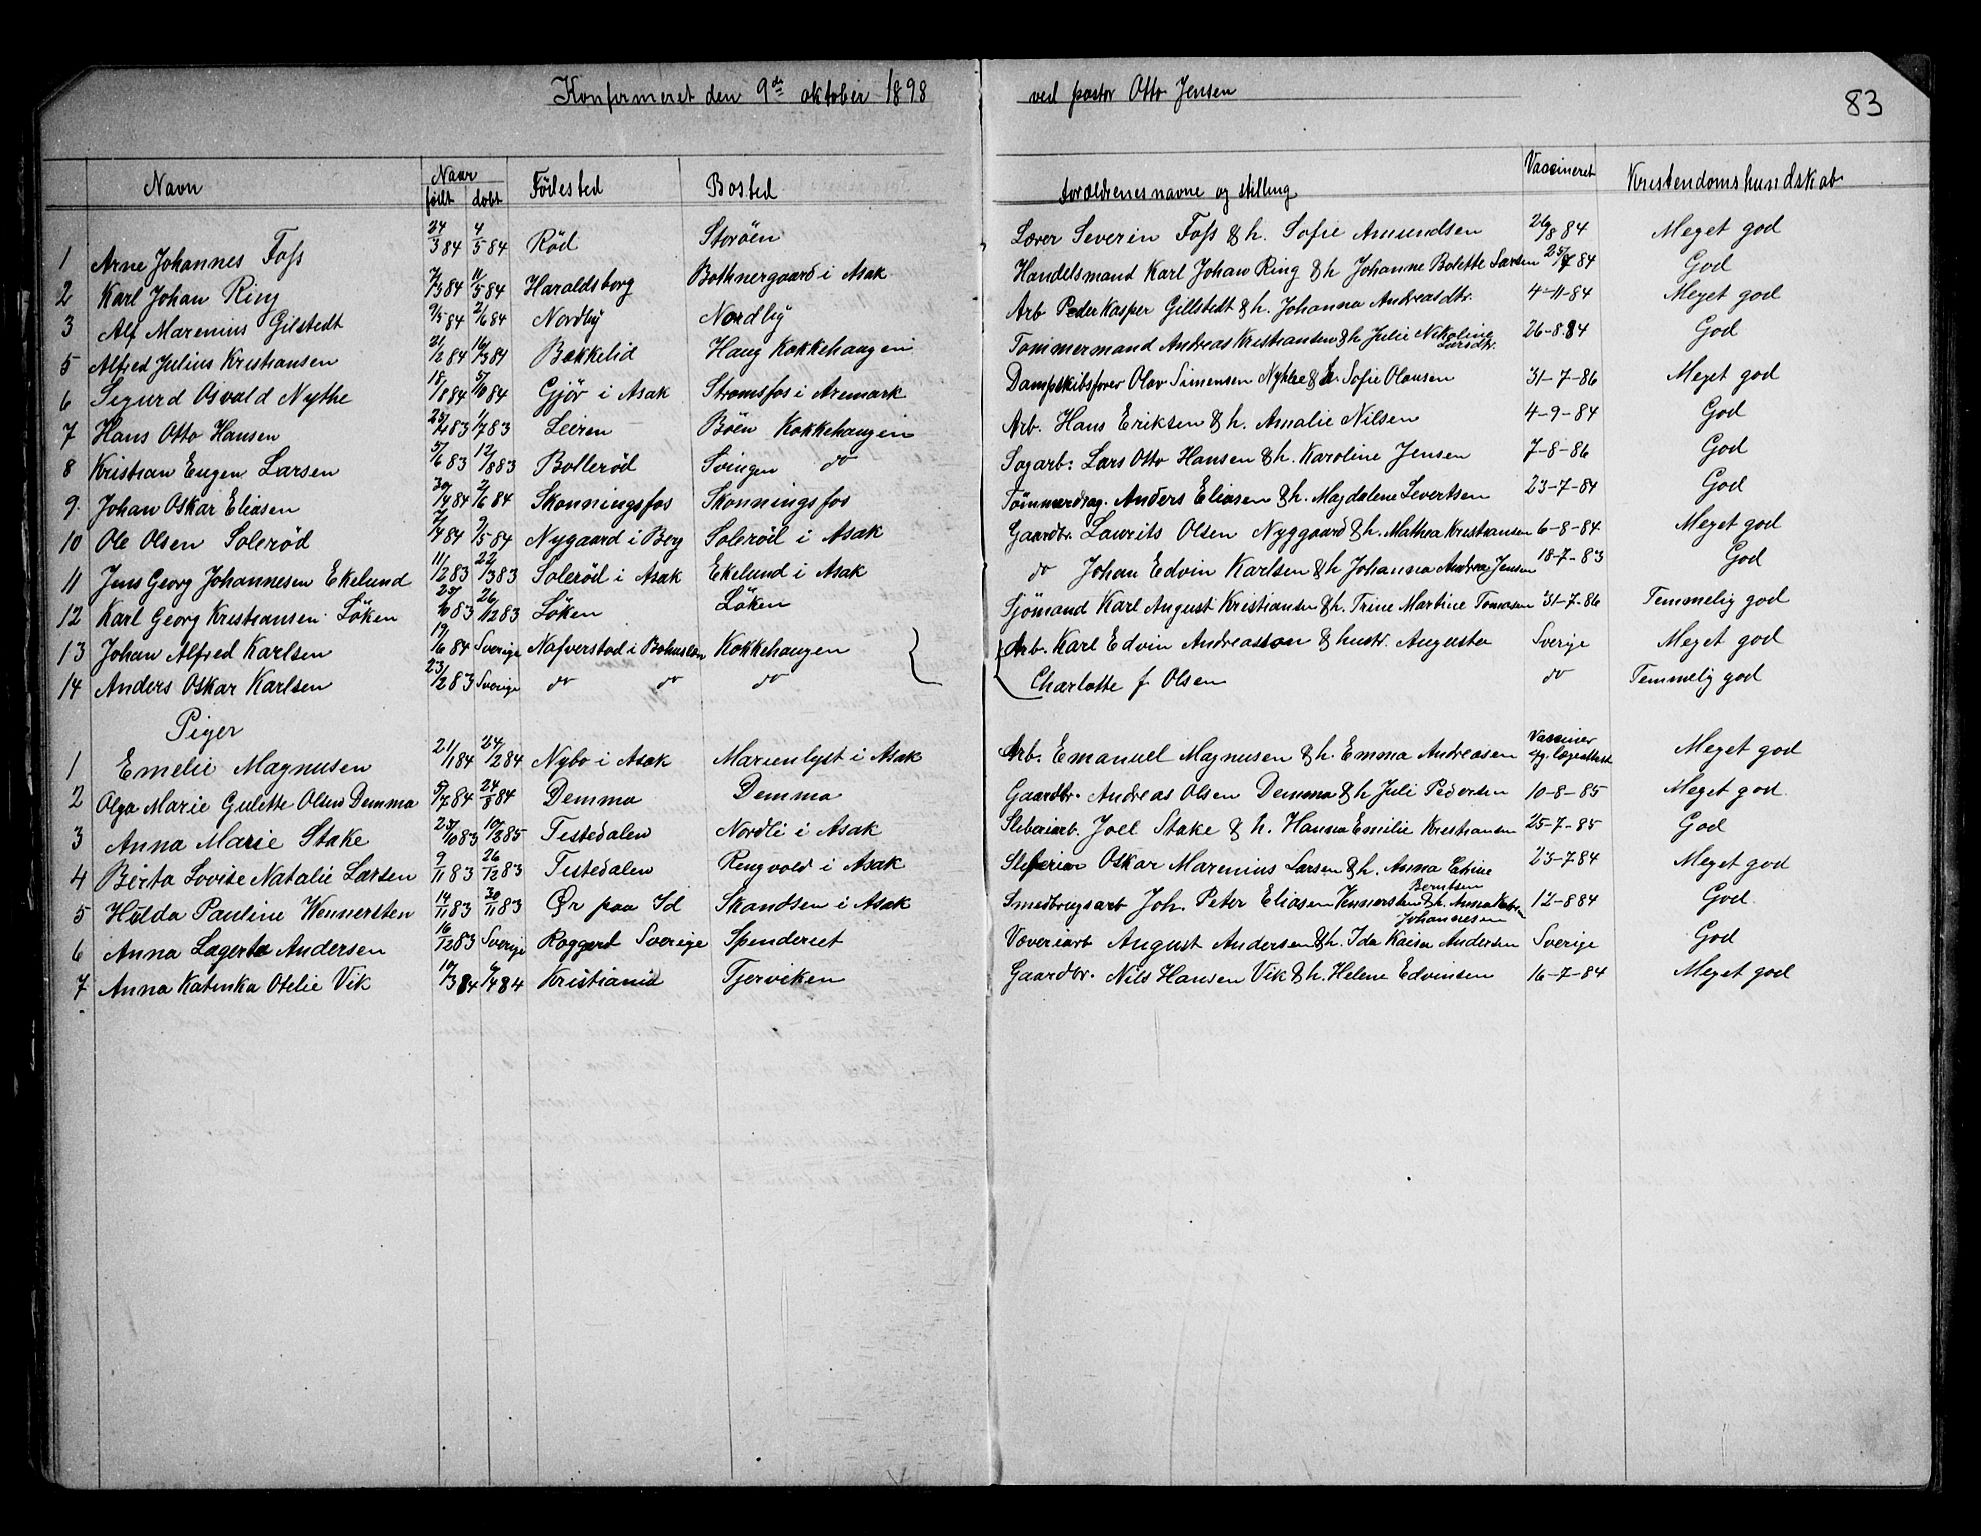 Konfirmeret den 9de oktober 1898 ved pastor Otto Jensen 83
Navn Naar født døbt Födested Bosted Forældrenes navne og stilling Vaccineret Kristendomskundskab
1 Arne Johannes Foss 24/3 84 4/5 84 Röd Storöen Lærer Severin Foss & h. Sofie Amundsen 26/8 84 Meget god
2 Karl Johan Ring 7/3 84 11/5 84 Haraldsborg Bothnergaard i Asak Handelsmand Karl Johan Ring & h Johanne Bolette Larsen 25/7 84 God
3 Alf Marenius Gilstedt 9/5 84 2/6 84 Nordby Nordby Arb Peder Kasper Gillstedt & h. Johanna Andreasdtr. 4-11-84 Meget god
5 Alfred Julius Kristiansen 21/2 84 16/3 84 Bækkelid Haug Kokkehaugen Tömmermand Andreas Kristiansen & h Julie Nikoline Larsdtr. 26-8.84 God
6 Sigurd Osvald Nythe 18/1 84 5/10 84 Gjör i Asak Strömsfos i Aremark Dampskibsförer Olav Simensen & h. Sofie Olausen 31-7-86 Meget god
7 Hans Otto Hansen 25/4 83 1/7 83 Leiren Böen Kokkehaugen Arb. Hans Eriksen & h. Amalie Nilsen 4-9-84 God
8 Kristian Eugen Larsen 5/6 83 12/8 83 Bollerød Svingen do Sagarb: Lars Otto Hansen & h. Karoline Jensen 7-8-86 God
9. Johan Oskar Eliasen 30/4 84 2/6 84 Skonningsfos Skonningsfos Tömmerdrag. Anders Eliasen & h. Magdalene Severtsen 23-7-84 God
10 Ole Olsen Solerød 7/4 84 9/5 84 Nygaard i Berg Solerød i Asak Gaardbr. Laurits Olsen Nyggaard & h. Mathea Kristiansen 6-8-84 Meget god
11 Jens Georg Johannesen Ekelund 11/2 83 22/3 83 Solerød i Asak Ekelund i Asak do Johan Edvin Karlsen & h Johanna Andrea Jensen 18-7-83 God
12 Karl Georg Kristiansen Löken 25/10 83 26/12 83 Löken Löken Sjömand Karl August Kristiansen & h. Trine Martine Tomasen 31-7-86 Temmelig god
13 Johan Alfred Karlsen 19/6 84 Sverige Nafverstad i Bohuslæn Kokkehaugen Arb. Karl Edvin Andreasson & hustr. Augusta Sverige Meget god
14 Anders Oskar Karlsen 23/12 83 Sverige do do do Charlotte f Olsen do Temmelig god
Piger
1 Emelie Magnusen 21/1 84 24/2 84 Nybo i Asak Marienlyst i Asak Arb. Emanuel Magnusen & h. Emma Andreasen Vacciner lægeattest Meget god
2 Olga Marie Gulette Olsen Demma 5/7 84 24/8 84 Demma Demma Gaardbr. Andreas Olsen Demma & h Juli Pedersen 10-8-85 Meget god.
3 Anna Marie Stake 25/10 83 10/2 85 Tistedalen Nordli i Asak Sliberiarb. Joel Stake & h. Hanna Emilie Kristiansen 25-7-85 God
4 Berta Lovise Natalie Larsen 9/11 83 26/12 83 Tistedalen Ringvold i Asak Oskar Marenius Larsen & h. Anna Berntsen 23-7 84 Meget god
5 Hilda Pauline Wennersten 14/11 83 30/11 83 Ør paa Id Skandsen i Asak Smedbrugsarb Joh. Peter Eliasen Wennersten & h. Anna Johannesen 12-8 84 God.
6 Anna Lagerta Andersen 16/12 83 Sverige Roggerd Sverige Spenderiet Væveriarb August Andersen & h. Ida Kaisa Andersen Sverige God
7 Anna Katinka Otelie Vik 10/3 84 6/4 84 Kristiania Tjerviken Gaardbr. Nils Hansen Vik & h. Helene Edvinsen 16-7-84 Meget god